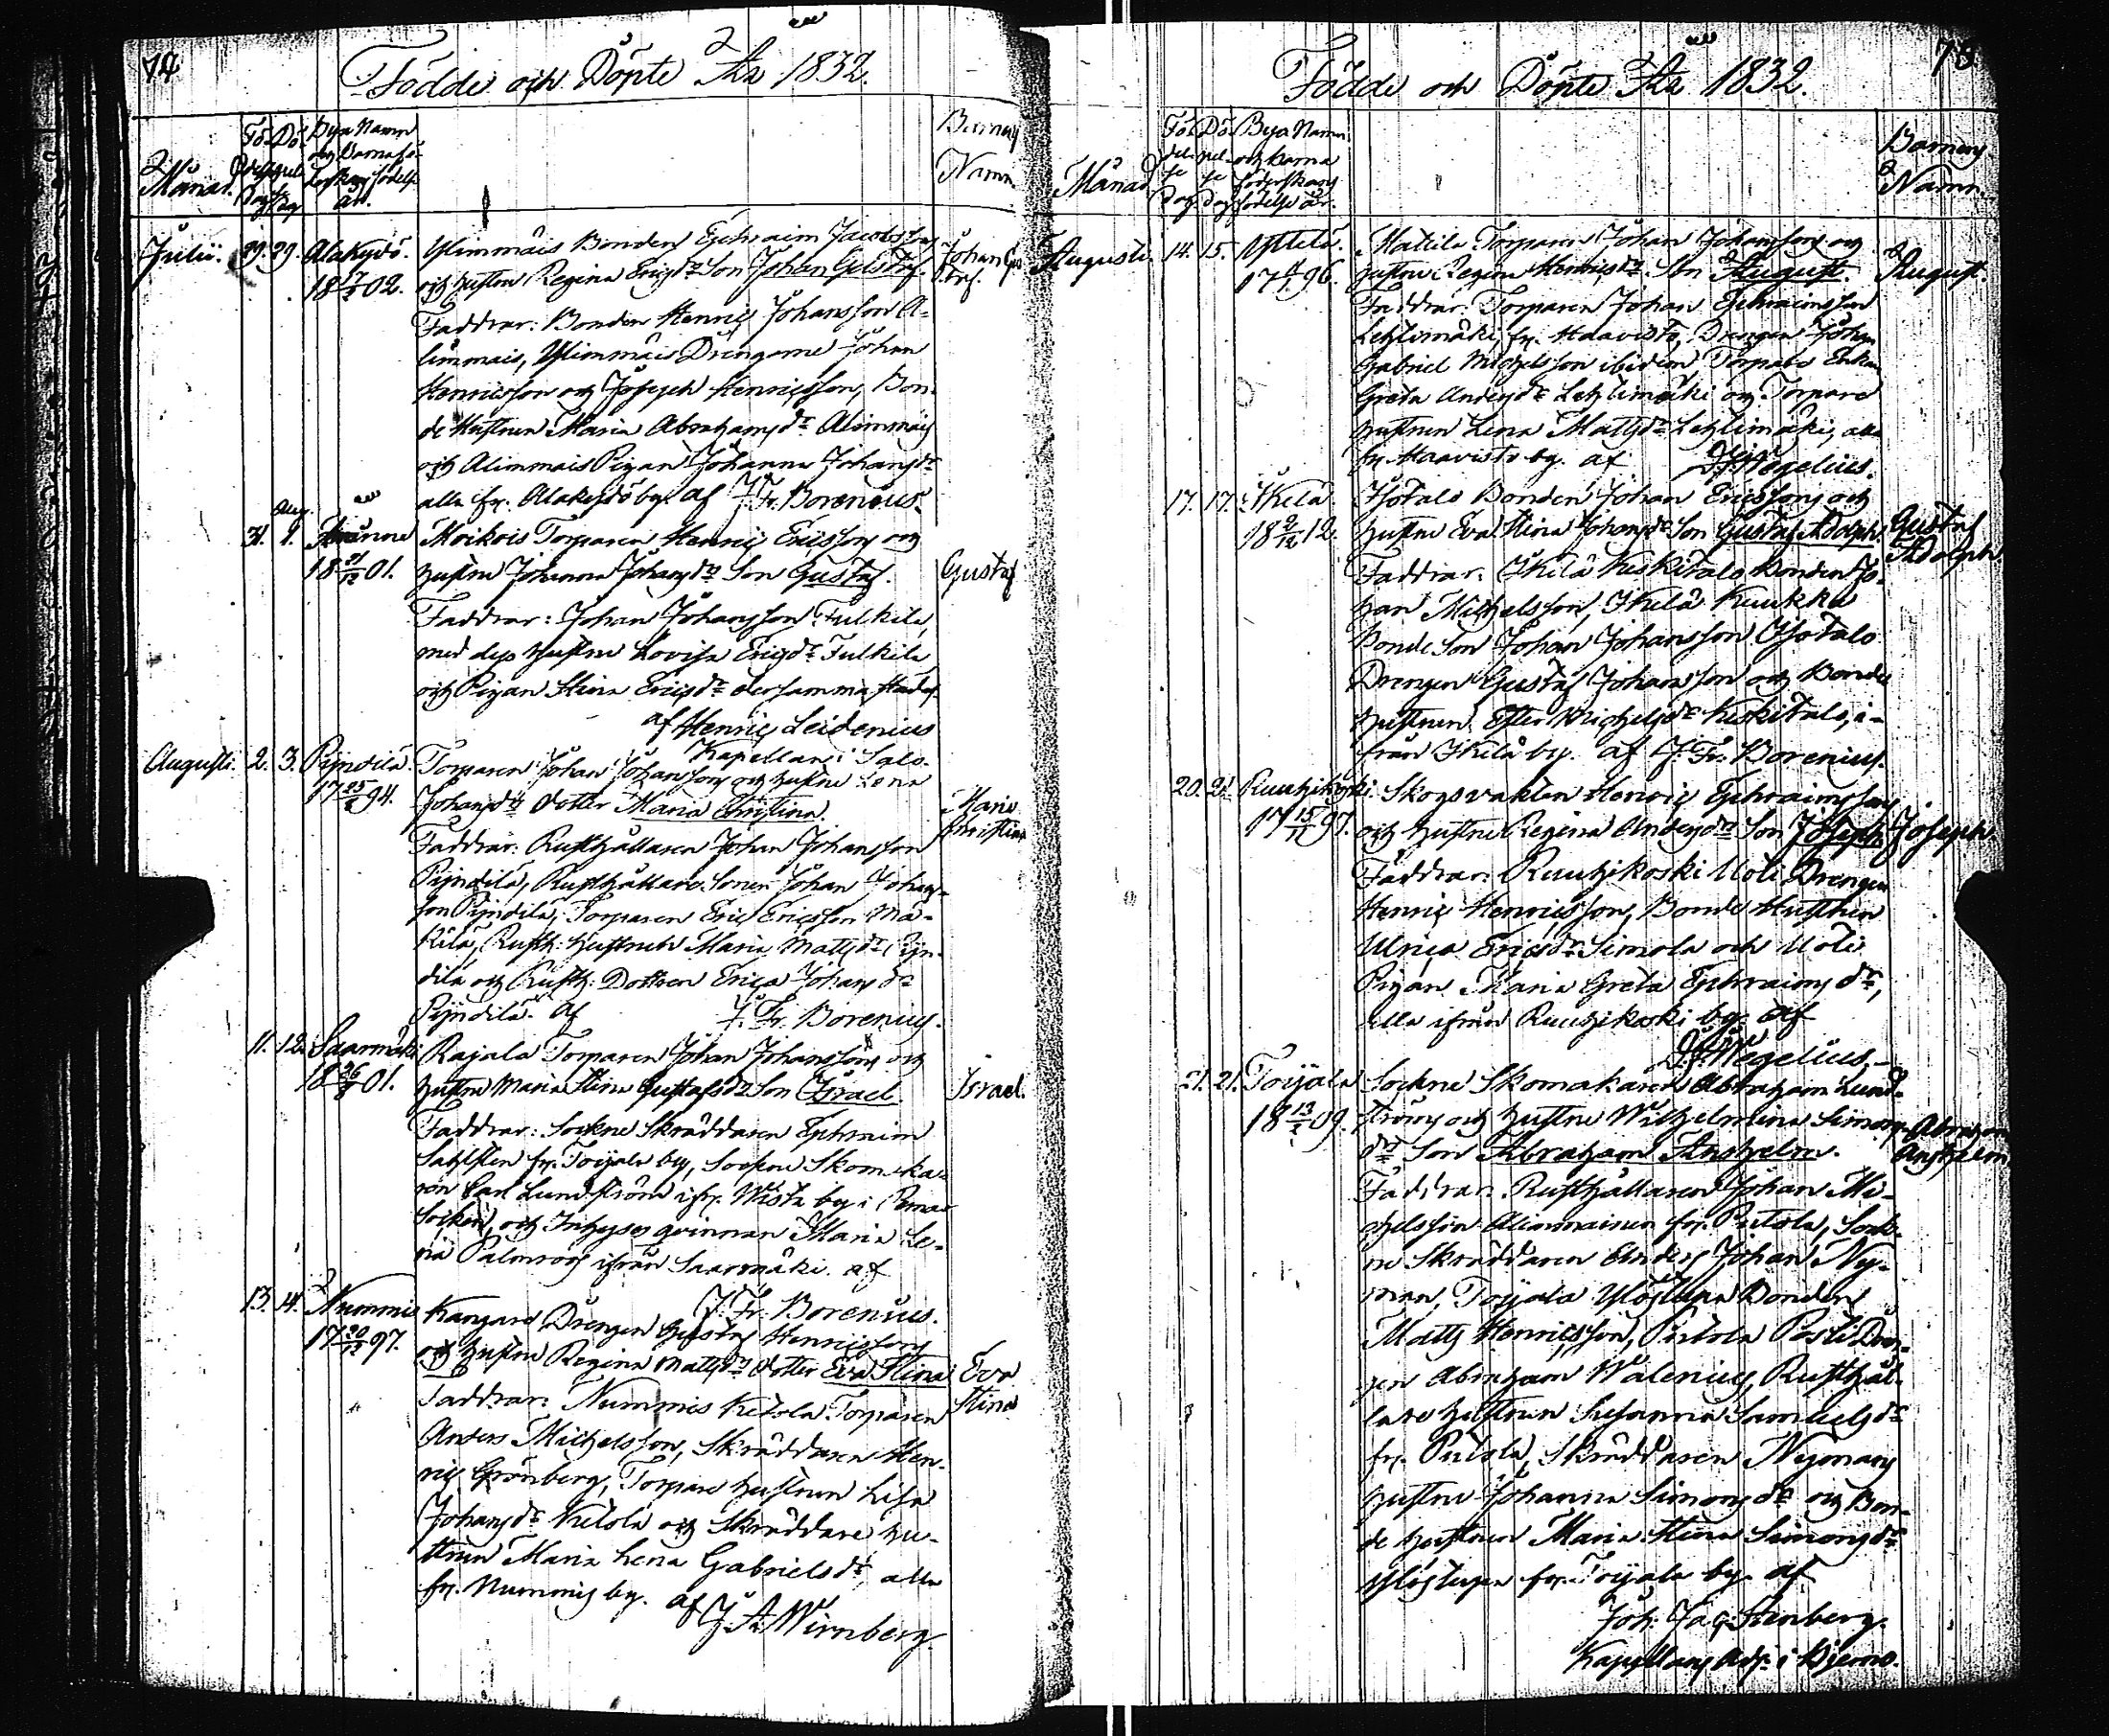 74
Födde och Döpte År 1832.
Månad.
Fö- Dö- Bya Namn
och Barnafö-
Barnens
Namn.
Julii. 29. 29. Alakydö. Ylimmäis Bonden Ephraim Jacobsson
1802. och hustrun Regina Ericsdrs Son Johan Gustaf. Johan Gustaf.
Faddrar: Bonden Henric Johansson A-
limmais, Ylimmäis Drengarne Johan
Henricsson och Joseph Henricsson, Bon-
de Hustrun Maria Abrahamsdr Alimmäis
och Alimmais Pigan Johanna Johansdr
alla fr. Alakydö by. af J. Fr. Borenius.
Aug.
31. 1. Moikois Torparen Henric Ericssons och
18 21/12 01. hustrus Johanna Johansdrs Son Gustaf. Gustaf
Faddrar: Johan Johansson Fulkila,
med dess hustru Lovisa Ericsdr Fulkila,
och Pigan Stina Ericsdr dersammastädes.
af Henric Leidenius
Kapellan i Salo.
Augusti. 2. 3. Pyndilä. Torparen Johan Johanssons och hustrus Lena
17 25/2 94. Johansdrs dotter Maria Christina. Maria Christina
Faddrar: Rusthållaren Johan Johansson
Pyndilä, Rusthållare Sonen Johan Johans-
son Pyndilä, Torparen Eric Ericsson Mä-
kilä, Rusth: hustrun Maria Mattsdr Pyn-
dilä och Rusth: Dottren Erica Johansdr
Pyndilä. af J. Fr. Borenius.
11. 12. Saarmäki Rajala Torparen Johan Johanssons och
18 26/8 01. hustrus Maria Stina Gustafsdrs Son Israel. Israel.
Faddrar: Sockne Skräddaren Ephraim
Sahlsten fr. Toijala by, Sockne Skomaka-
ren Carl Lundström ifr. Wista by i Pemar
Socken, och Inhyses qvinnan Maria Le-
na Palmroos ifrån Saarmäki. af
J. Fr. Borenius.
13. 14. Nummis Kangars Drengen Gustaf Henricssons
17 20/12 97. och hustrus Regina Mattsdrs dotter Eva Stina Eva Stina
Faddrar: Nummis Ketola Torparen
Anders Michelsson, Skräddaren Hen-
ric Grönberg, Torpare hustrun Lisa
Johansdr Ketola och Skräddare hu-
strun Maria Lena Gabrielsdr, alla
fr. Nummis by. af J. A. Wirnberg.
75
Födde och Döpte År 1832.
Månad
Fö- Dö- Bya Namn
delse pel- och Barna
se se föderskans
Dag. Dag. födelse år.
Barnens
Namn.
Augusti. 14. 15. Yttelä. Mattila Torparen Johan Johanssons och
1796. hustrus Regina Henricsdrs Son August. August.
Faddrar: Torparen Johan Ephraimsson
Lehtimäki, fr. Haavisto, Drengen Johan
Gabriel Michelsson ibidem, Torpare Enkan
Greta Andersdr Lehtimäki och Torpare
hustrun Lena Mattsdr Lehtimäki, alla
fr. Haavisto by. af Wegelius.
17. 17. Ikelä Isotalo Bonden Johan Ericssons och
18 2/12 12. hustrus Eva Stina Johansdrs Son Gustaf Adolph. Gustaf Adolph.
Faddrar: Ikelä Keskitalo Bonden Jo-
han Michelsson, Ikelä Kuukka
Bonde Son Johan Johansson Isotalo
Drengen Gustaf Johansson och Bonde
hustrun Ester Michelsdr Keskitalo, i-
från Ikelä by. af J. Fr. Borenius.
20. 21. Ruuhikoski. Skogsvakten Henric Ephraimssons
17 15/11 97. och hustrus Regina Andersdrs Son Joseph Joseph.
Faddrar: Ruuhikoski Uoti Drengen
Henric Henricsson, Bonde Hustrun
Ulrica Ericsdr Simola och Uoti
Pigan Maria Greta Ephraimsdr,
alla ifrån Ruuhikoski by. af
Wegelius.
21. 21. Toijala Sockne Skomakaren Abraham Lund-
18 13/2 09. ströms och hustrus Wilhelmina Simons- Abraham
drs Son Abraham Anshelm. Anshelm
Faddrar: Rusthållaren Johan Mi-
chelsson Alimmainen fr. Putola, Sock-
ne Skräddaren Anders Johan Ny-
man, Toijala Bonden
Matts Henricsson, Putola Posti Dren-
gen Abraham Walenius, Rusthål-
lare hustrun Susanna Samuelsdr
fr. Putola, Skräddaren Nymans
hustru Johanna Simonsdr och Bon-
de hustrun Maria Stina Simonsdr
fr. Toijala by. af
Joh: Jac: Stenberg.
Kapellans Adj: i Bjerno.